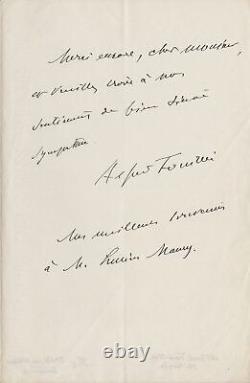 Merci encore, cher monsieur,
et veuillez croire à nos
sentiments de bien sincère
sympathie
Alfred Fouillée
Mes meilleurs souvenirs
à M. Lucien Maury.